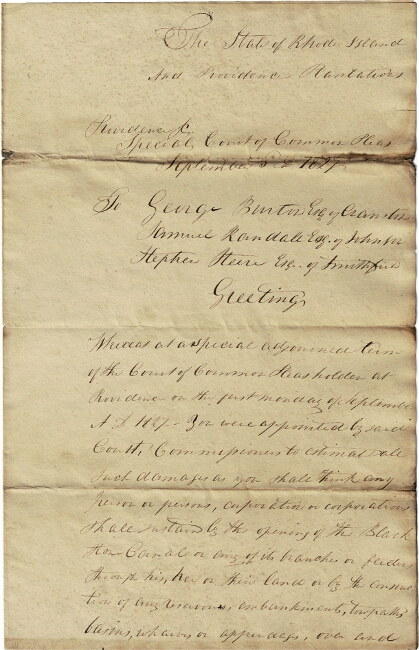 The State of Rhode Island
And Providence Plantations
Providence Sc
Special, Court of Common Pleas
September 3d 1827
To George Burton Esq of Cranston
Samuel Randall Esq. of Johnson
Stephen Steere Esq. of Smithfield
Greeting
Whereas at a special adjourned term
of the Court of Common Pleas holden at
Providence on the first monday of September
A D 1827 - You were appointed by said
Court, Commissioners to estimate all
such damages as you shall think any
person or persons, corporation or corporations
shall sustain by the opening of the Black
stone Canal or any of its branches or feeders
through his, her or their land or by the construc
tion of any reservoirs, embankments, towpaths
basins, wharves or appendages, over and